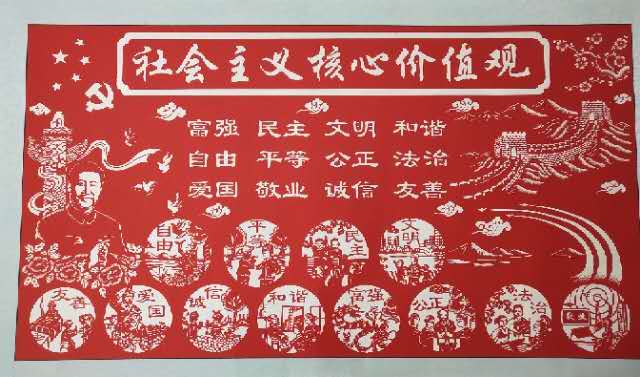 社会主义核心价值观
富强 民主 文明 和谐
自由 平等 公正 法治
爱国 敬业 诚信 友善
自由 平等 民主 文明
友善 爱国 诚信 和谐 富强 公正 法治 敬业